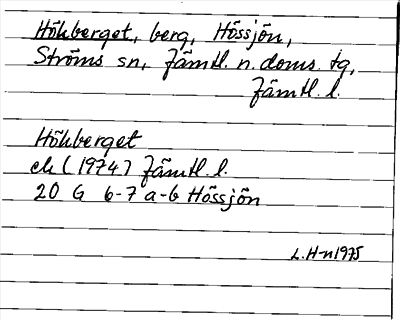 Hökberget, berg, Hössjön,
Ströms sn, Jämtl. n. doms. tg,
Jämtl. l.
Hökberget
ek (1974) Jämtl. l.
20 G 6-7 a-b Hössjön
L. H-n 1975